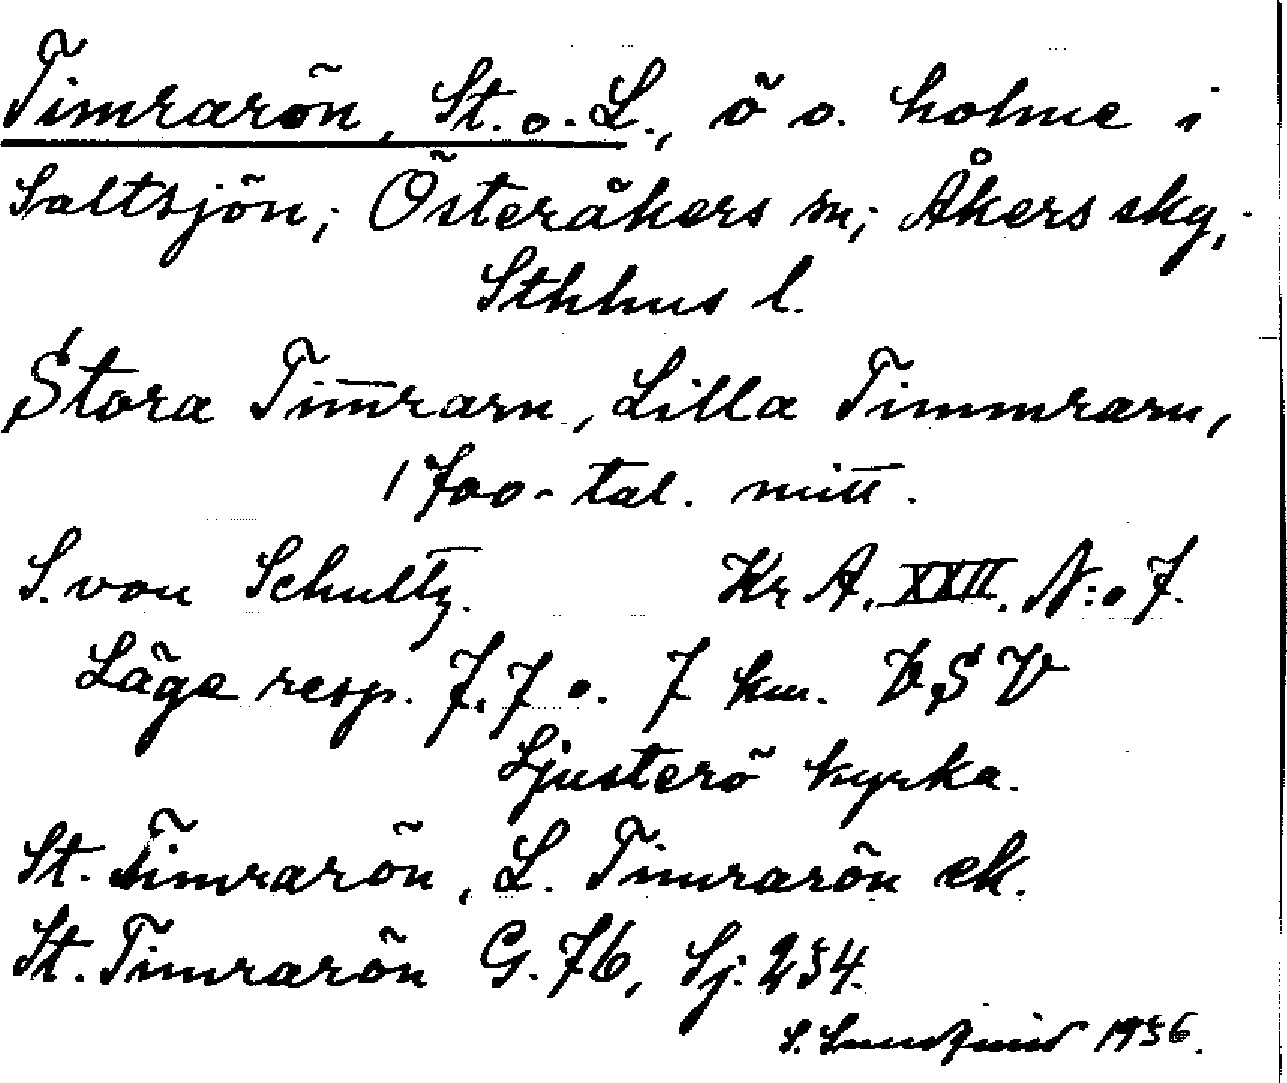 Timrarön, St. o. L., ö o. holme i
Saltsjön; Österåkers sn; Åkers skg;
Sthlms l.
Stora Tim̅rarn, Lilla Timmrarn,
1700-tal. mitt.
S. von Schultz. Kr A. XXII. N:o 7.
Läge resp. 7,7 o. 7 km. VSV
Ljusterö kyrka.
St. Timrarön, L. Timrarön ek.
St. Timrarön G. 76, Sj: 234.
1936.